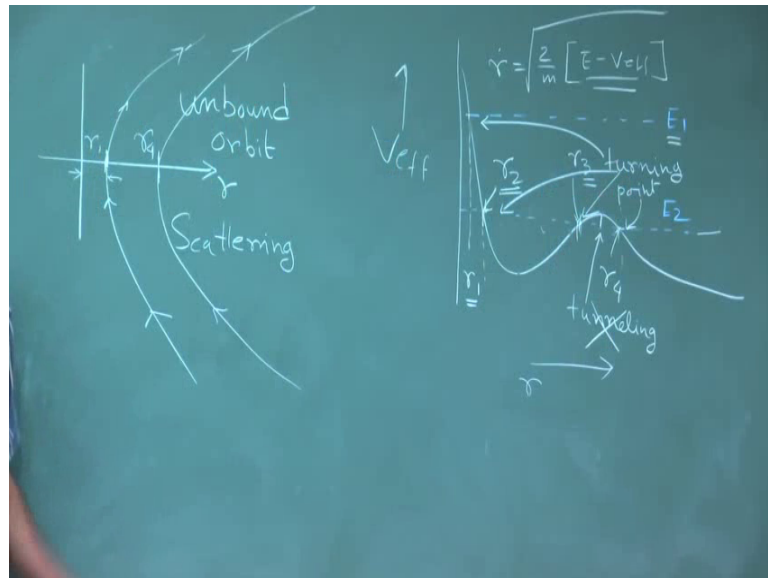 unbound
orbit
r₁
r₄
r
Scattering
ṙ = √ 2/m [E - Veff]
Veff
E1
r₂
r₃
turning
point
E2
r₁
r₄
tunneling
r